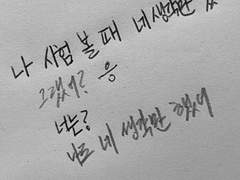 나 시험 볼 때 네 생각만
그랬어? 응
너는?
나도 네 생각만 했어